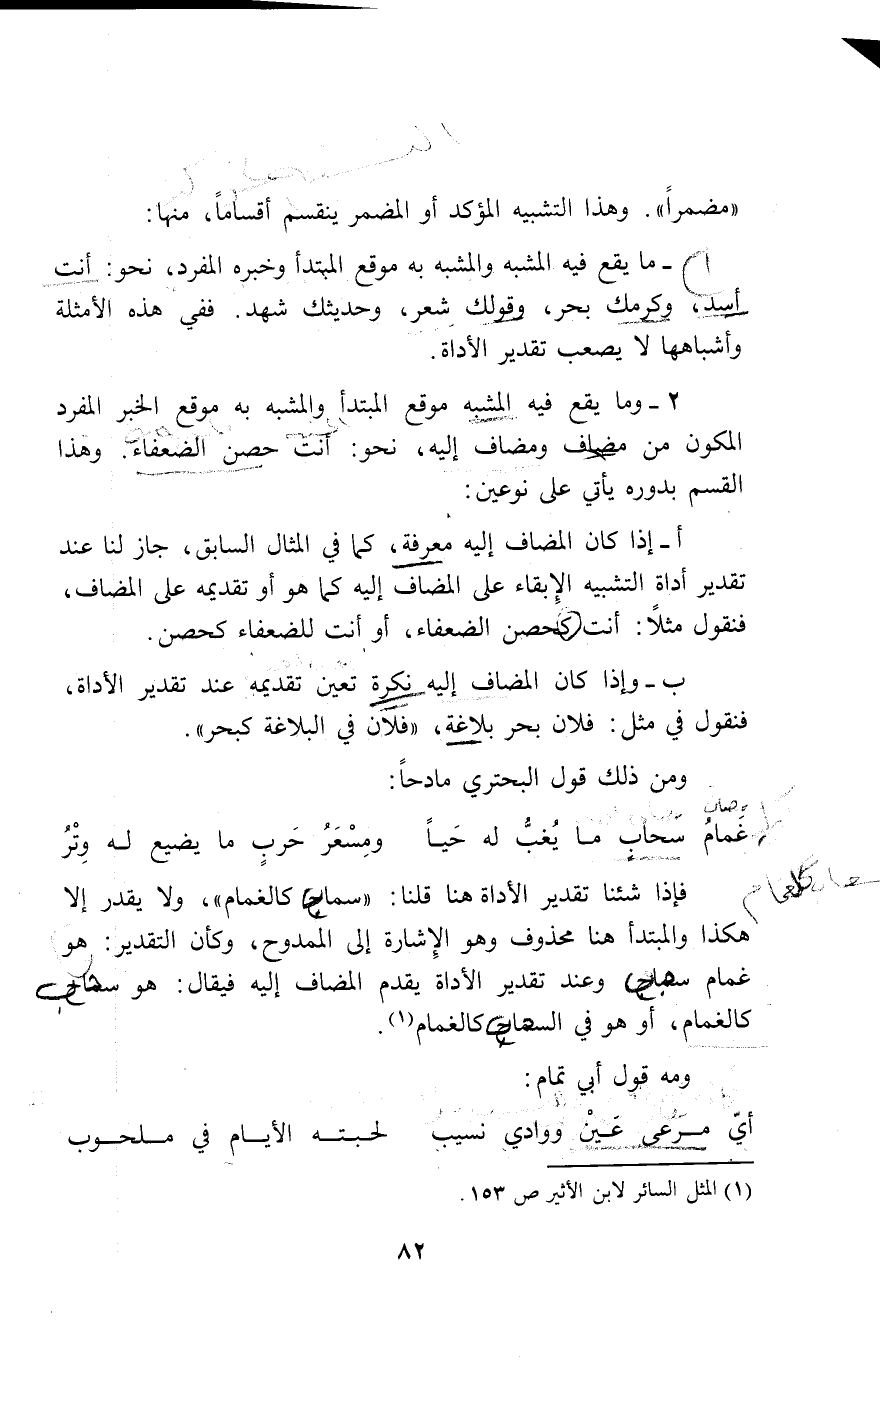 «مضمراً». وهذا التشبيه المؤكد أو المضمر ينقسم أقساماً، منها:
١ ـ ما يقع فيه المشبه والمشبه به موقع المبتدأ وخبره المفرد، نحو: أنت
أسد، وكرمك بحر، وقولك شعر، وحديثك شهد. ففي هذه الأمثلة
وأشباهها لا يصعب تقدير الأداة.
٢ ـ وما يقع فيه المشبه موقع المبتدأ والمشبه به موقع الخبر المفرد
المكون من مضاف ومضاف إليه، نحو: أنت حصن الضعفاء. وهذا
القسم بدوره يأتي على نوعين:
أ ـ إذا كان المضاف إليه معرفة، كما في المثال السابق، جاز لنا عند
تقدير أداة التشبيه الإبقاء على المضاف إليه كما هو أو تقديمه على المضاف،
فنقول مثلًا: أنت كحصن الضعفاء، أو أنت للضعفاء كحصن.
ب ـ وإذا كان المضاف إليه نكرة تعين تقديمه عند تقدير الأداة،
فنقول في مثل: فلان بحر بلاغة، «فلان في البلاغة كبحر».
ومن ذلك قول البحتري مادحاً:
غَمامُ سَحابٍ ما يُغبُّ له حَياً ومِسْعَرُ حَربٍ ما يضيع له وِتْرُ
فإذا شئنا تقدير الأداة هنا قلنا: «سماح كالغمام»، ولا يقدر إلا
هكذا والمبتدأ هنا محذوف وهو الإشارة إلى الممدوح، وكأن التقدير: هو
غمام سماح وعند تقدير الأداة يقدم المضاف إليه فيقال: هو سماح
كالغمام، أو هو في السماح كالغمام(١).
ومه قول أبي تمام:
أيّ مَرْعى عَيْن ووادي نسيب لحبته الأيام في ملحوب
(١) المثل السائر لابن الأثير ص ١٥٣.
٨٢